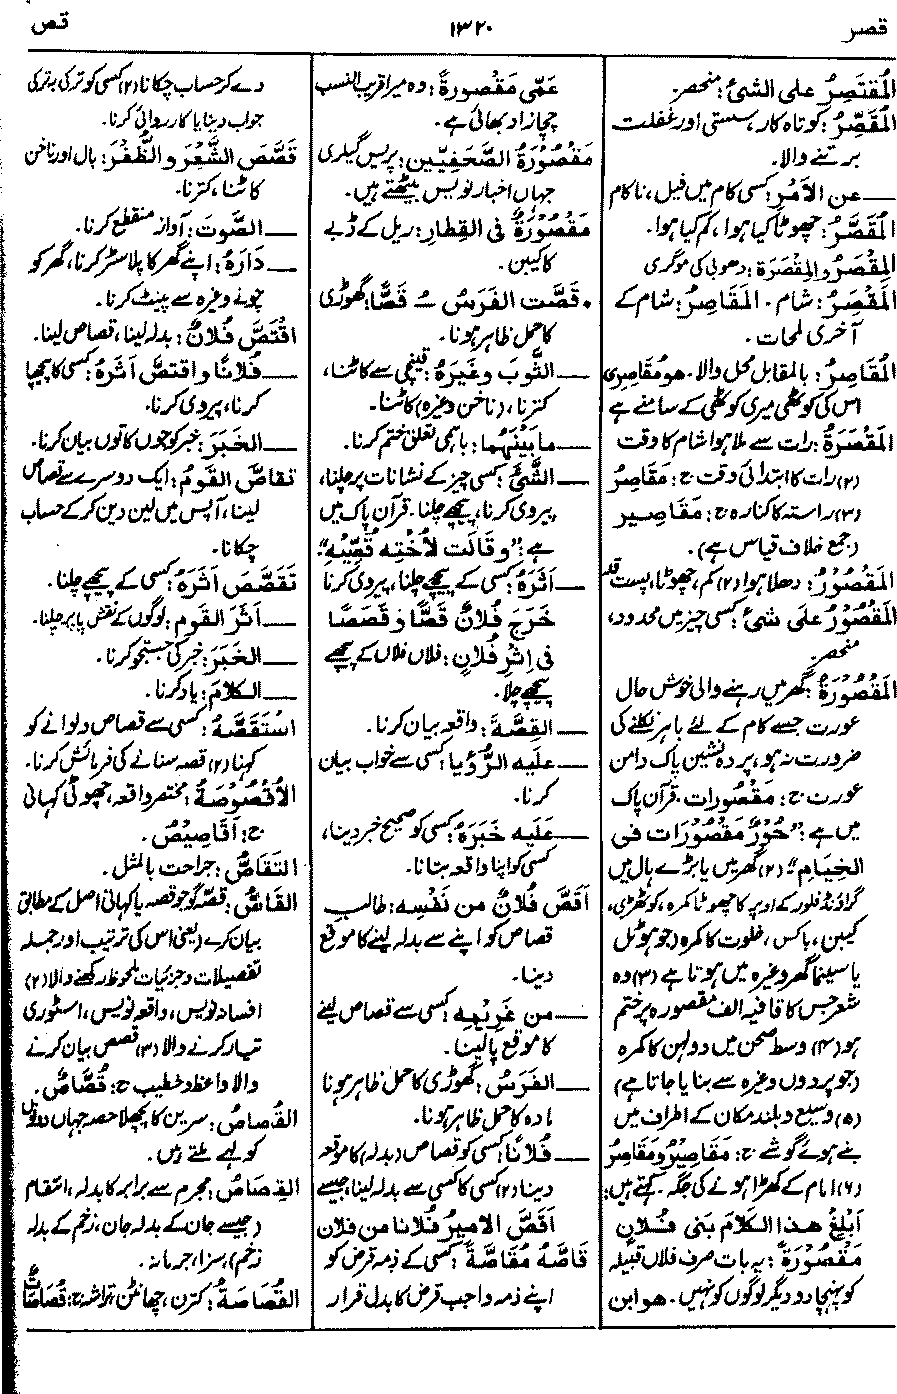 قصر
۱۳۲۰
قص
المُقتَصِرُ على الشيءِ: منحصر۔
المُقَصِّرُ: کوتاہ کار، سستی اور غفلت
برتنے والا۔
ـــ عن الاَمْرِ: کسی کام میں فیل، ناکام
المُقَصَّرُ: چھوٹا کیا ہوا، کم کیا ہوا۔
المِقْصَرُ والمِقْصَرَة: دھوبی کی موگری
المَقْصَرُ: شام۔ المَقَاصِرُ: شام کے
آخری لمحات۔
المُقَاصِرُ: بالمقابل محل والا۔ هو مُقَاصِرِى
اس کی کوٹھی میری کوٹھی کے سامنے ہے
المَقْصَرَةُ: رات سے ملا ہوا شام کا وقت
(۲) رات کا ابتدائی وقت ج: مَقَاصِرُ
(۳) راستہ کا کنارہ ج: مَقَاصِير
(جمع خلاف قیاس ہے)۔
المَقْصُوْرُ: دھلا ہوا (۲) کم، چھوٹا، پست قد
المَقْصُوْرُ على شئ: کسی چیز میں محدود،
منحصر۔
المَقْصُوْرَةُ: گھر میں رہنے والی خوش حال
عورت جسے کام کے لئے باہر نکلنے کی
ضرورت نہ ہو، پردہ نشین پاک دامن
عورت ج: مَقْصُورات۔ قرآن پاک
میں ہے: "حُوْرٌ مَقْصُوْرَات فى
الخِيَام" (۲) گھر میں یا بڑے ہال میں
گراؤنڈ فلور کے اوپر کا چھوٹا کمرہ، کوٹھری،
کیبن، باکس، خلوت کا کمرہ (جو ہوٹل
یا سینما گھر وغیرہ میں ہوتا ہے (۳) وہ
شعر جس کا قافیہ الف مقصورہ پر ختم
ہو (۴) وسط صحن میں دولہن کا کمرہ
(جو پردوں وغیرہ سے بنایا جاتا ہے)
(۵) وسیع و بلند مکان کے اطراف میں
بنے ہوئے گوشے ج: مَقَاصِيْرُ و مَقَاصِرُ
(۶) امام کے کھڑا ہونے کی جگہ۔ کہتے ہیں:
اَبْلِغْ هذا الكلامَ بَنى فُلان
مَقْصُوْرَةً: یہ بات صرف فلاں قبیلہ
کو پہنچا دو دیگر لوگوں کو نہیں۔ هو ابن
عَمِّى مَقْصُورةً: وہ میرا قریب النسب
چچا زاد بھائی ہے۔
مَقْصُوْرَةُ الصَّحَفِيِّين: پریس گیلری
جہاں اخبار نویس بیٹھتے ہیں۔
مَقْصُوْرَةٌ فى القِطَار: ریل کے ڈبے
کا کیبن۔
• قَصَّت الفَرَسُ ـُ قَصًّا: گھوڑی
کا حمل ظاہر ہونا۔
ـــ الثَّوبَ وغَيرَهُ: قینچی سے کاٹنا،
کترنا، (ناخن وغیرہ) کاٹنا۔
ـــ مابَيْنَهُما: باہمی تعلق ختم کرنا۔
ـــ الشَّئَ: کسی چیز کے نشانات پر چلنا،
پیروی کرنا، پیچھے چلنا۔ قرآن پاک میں
ہے: "وقَالَت لاُخْتِه قُصِّيْهِ"۔
ـــ اَثَرَهُ: کسی کے پیچھے چلنا، پیروی کرنا
خَرَجَ فُلانٌ قَصًّا وقَصَصًا
فى اِثْرِ فُلَانٍ: فلاں فلاں کے پیچھے
پیچھے چلا۔
ـــ القِصَّةَ: واقعہ بیان کرنا۔
ـــ علَيه الرُّؤيا: کسی سے خواب بیان
کرنا۔
ـــ علَيه خَبَرَهُ: کسی کو صحیح خبر دینا،
کسی کو اپنا واقعہ بتانا۔
اَقَصَّ فُلانٌ من نَفْسِه: طالب
قصاص کو اپنے سے بدلہ لینے کا موقع
دینا۔
ـــ من غَرِيْمِه: کسی سے قصاص لینے
کا موقع پالینا۔
ـــ الفَرَسُ: گھوڑی کا حمل ظاہر ہونا
مادہ کا حمل ظاہر ہونا۔
ـــ فُلَانًا: کسی کو قصاص (بدلہ) کا موقعہ
دینا (۲) کسی کا کسی سے بدلہ لینا، جیسے
اَقَصَّ الامیرُ فُلانا من فلان
قَاصَّهُ مُقَاصَّةً: کسی کے ذمہ قرض کو
اپنے ذمہ واجب قرض کا بدل قرار
دے کر حساب چکانا (۲) کسی کو ترکی بہ ترکی
جواب دینا یا کارروائی کرنا۔
قَصَّصَ الشَّعْرَ و الظُّفْرَ: بال اور ناخن
کاٹنا، کترنا۔
ـــ الصَّوتَ: آواز منقطع کرنا۔
ـــ دَارَهُ: اپنے گھر کا پلاسٹر کرنا، گھر کو
چونے وغیرہ سے پینٹ کرنا۔
اقْتَصَّ فُلانٌ: بدلہ لینا، قصاص لینا۔
ـــ فُلانًا و اقتصَّ اَثَرَهُ: کسی کا پیچھا
کرنا، پیروی کرنا۔
ـــ الخبَرَ: خبر کو جوں کا توں بیان کرنا۔
تَقَاصَّ القَومُ: ایک دوسرے سے قصاص
لینا، آپس میں لین دین کر کے حساب
چکانا۔
تَقَصَّصَ اَثَرَهُ: کسی کے پیچھے چلنا۔
ـــ اَثَرَ القَوم: لوگوں کے نقش پا پر چلنا۔
ـــ الخَبَرَ: خبر کی جستجو کرنا۔
ـــ الكَلامَ: یاد کرنا۔
اسْتَقَصَّهُ: کسی سے قصاص دلوانے کو
کہنا (۲) قصہ سنانے کی فرمائش کرنا۔
الاُقْصُوْصَةُ: مختصر واقعہ، چھوٹی کہانی
ج: اَقَاصِيْصُ۔
التَّقَاصُّ: جراحت بالمثل۔
القَاصُّ: قصہ گو جو قصہ یا کہانی اصل کے مطابق
بیان کرے (یعنی اس کی ترتیب اور جملہ
تفصیلات و جزئیات ملحوظ رکھنے والا (۲)
افسانہ نویس، واقعہ نویس، اسٹوری
تیار کرنے والا (۳) قصص بیان کرنے
والا واعظ و خطیب ج: قُصَّاصٌ۔
القُصَاصُ: سرین کا پچھلا حصہ جہاں دونوں
کولہے ملتے ہیں۔
القِصَاصُ: مجرم سے برابر کا بدلہ، انتقام
(جیسے جان کے بدلہ جان، زخم کے بدلہ
زخم)، سزا، جرمانہ۔
القُصَاصَةُ: کترن، چھانٹن، تراشہ ج: قُصَاصَاتٌ